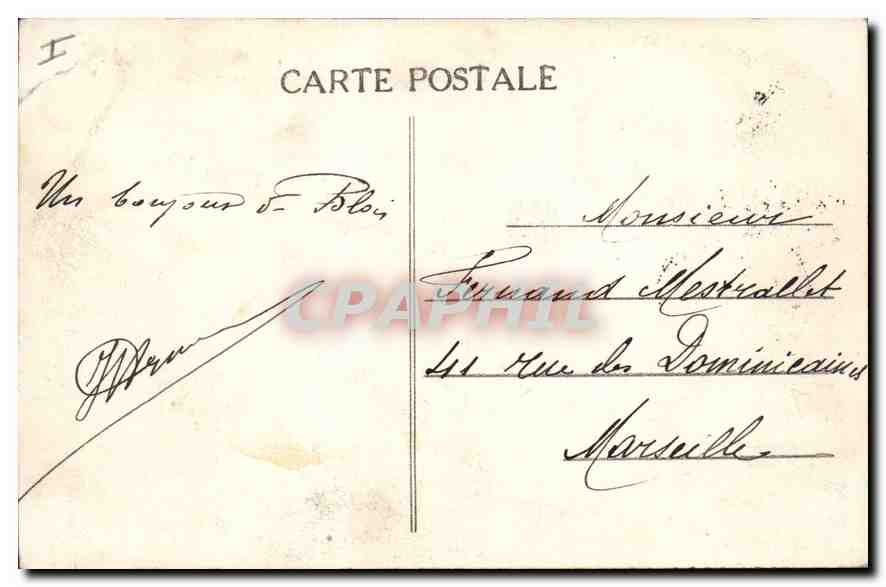 I
CARTE POSTALE
Un bonjour de Blois
Monsieur
Fernand Mestrallet
41 rue des Dominicaines
Marseille
CPAPHIL